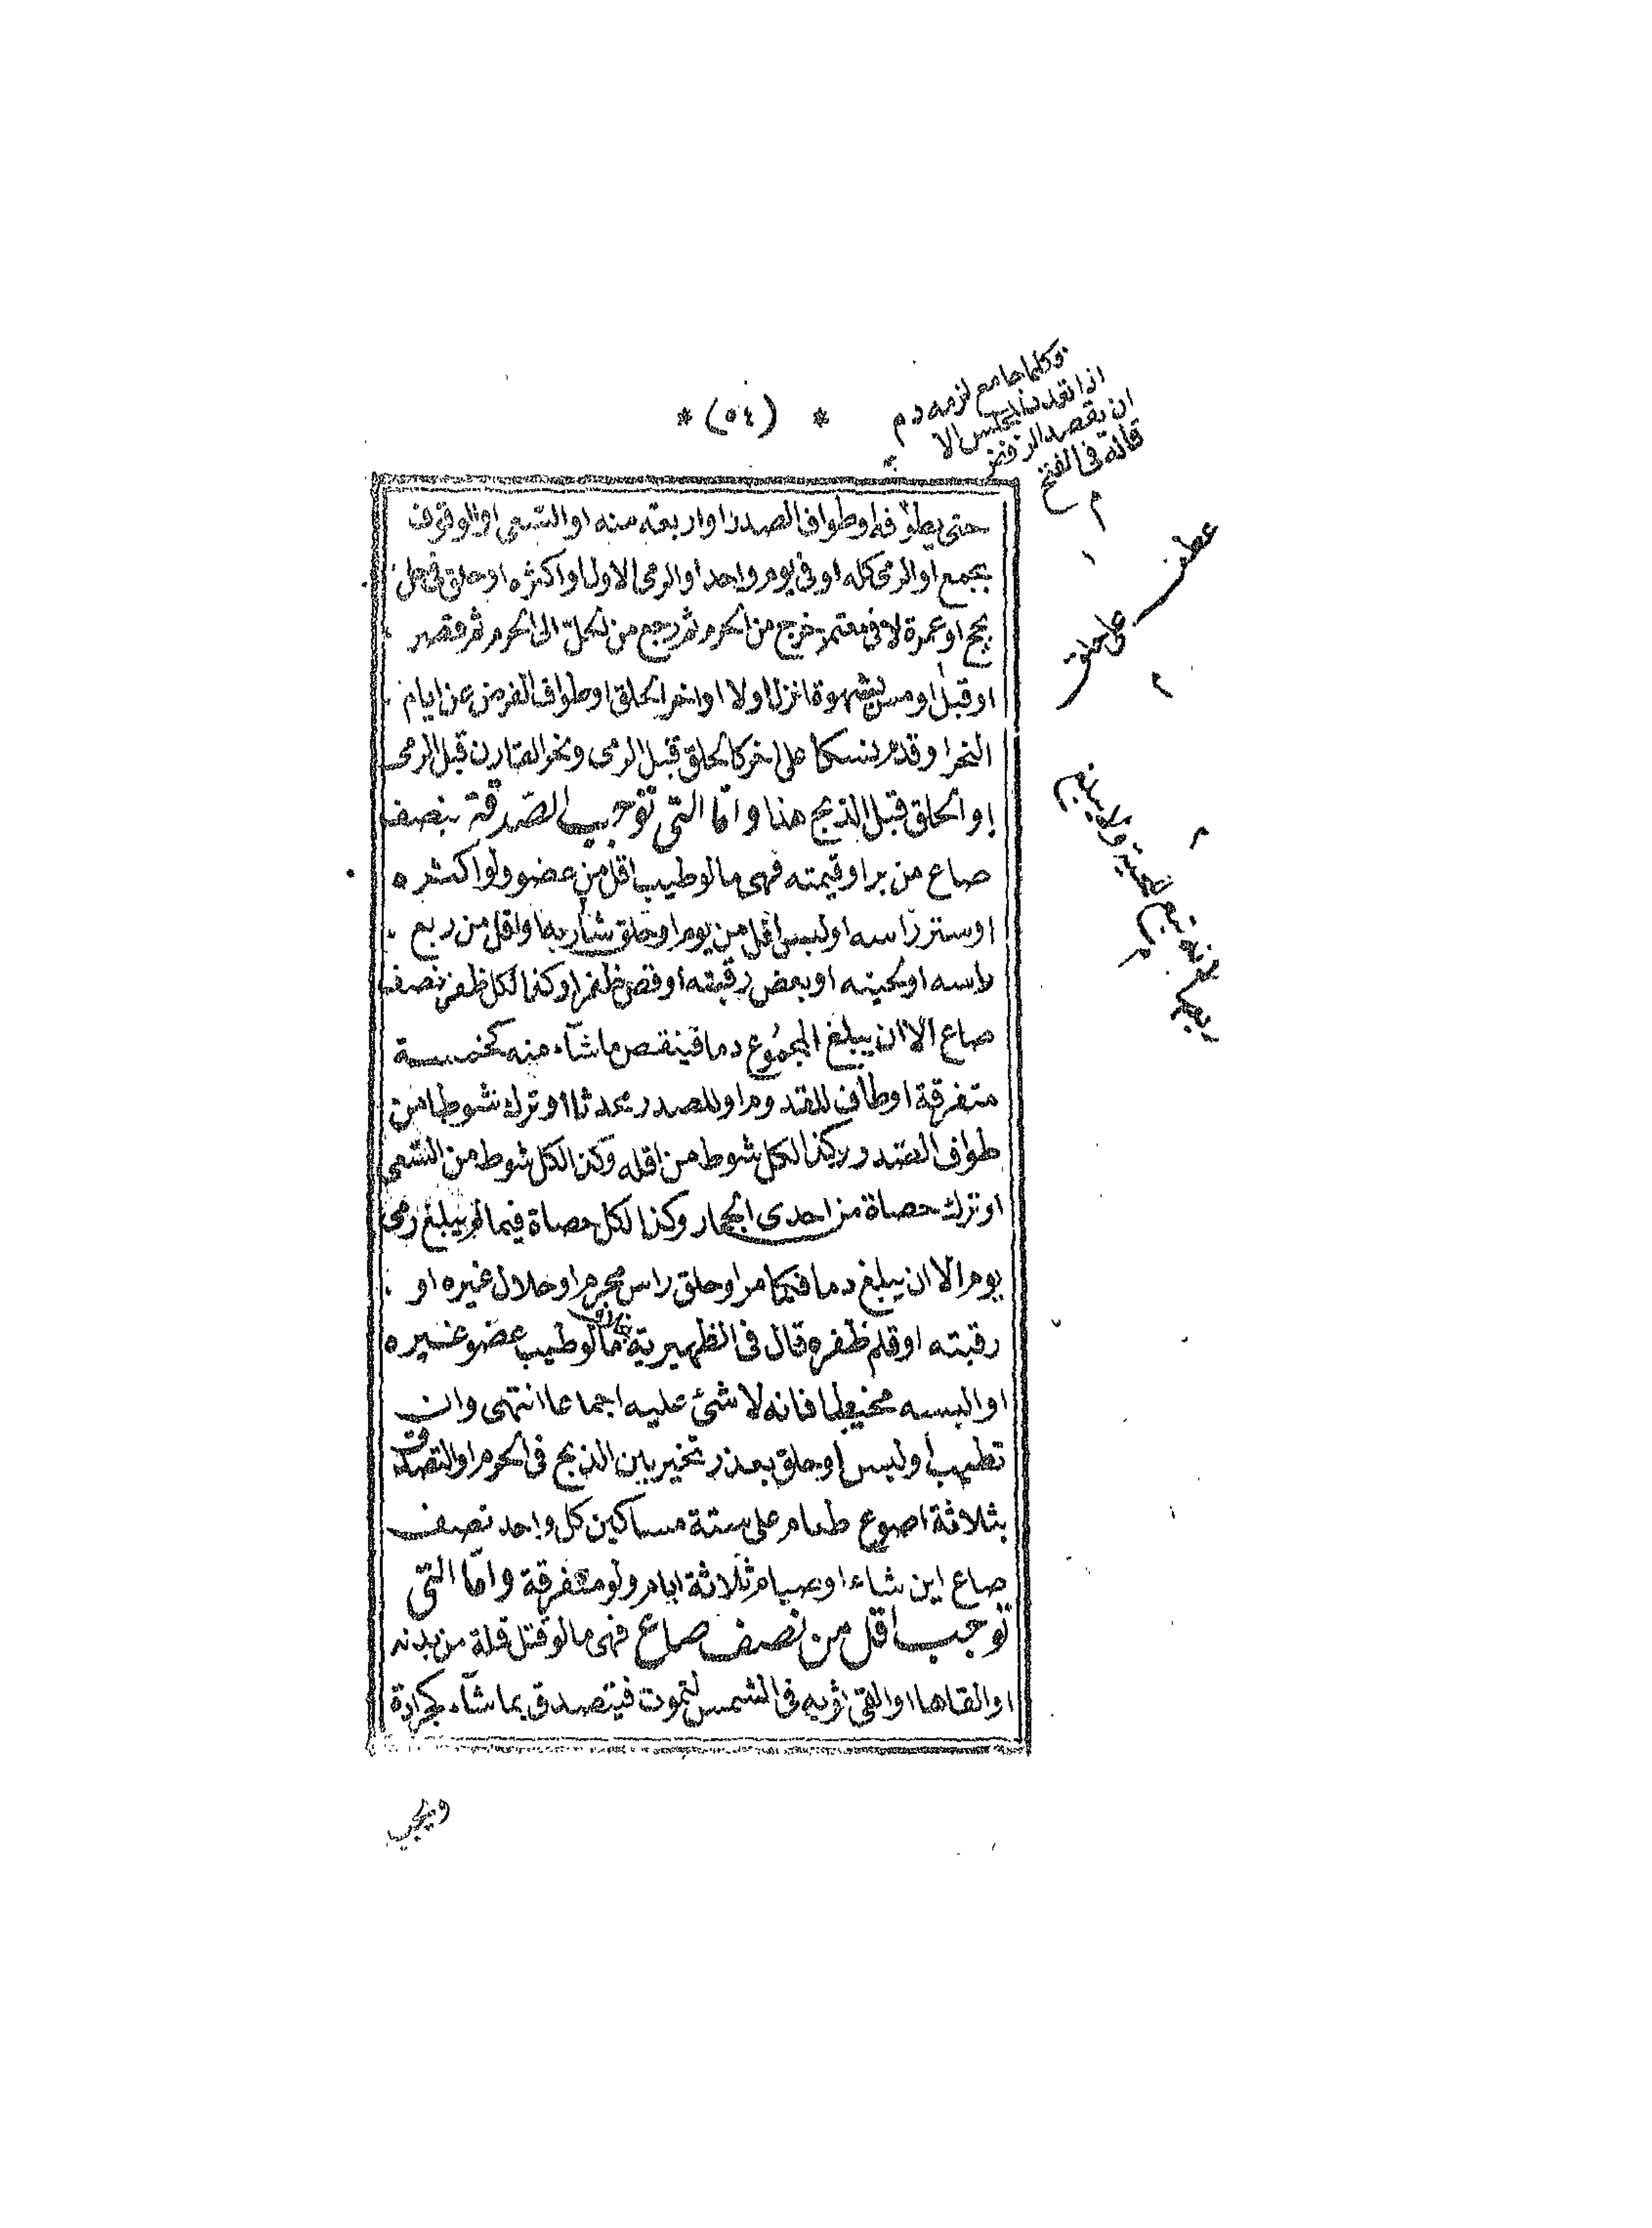 * (٥٤) *
وكلما جامع لزمه دم
اذا تعدد المجلس الا
ان يقصد الرفض
قاله فى الفتح
م
حتى يطوفه او طواف الصدر او اربعة منه او السعى او الوقوف
بجمع او الرمى كله او فى يوم واحد او الرمى الاول او اكثره او حلق فى حل
بحج او عمرة لا فى معتمر خرج من الحرم ثم رجع من الحل الى الحرم ثم قصر
او قبل او مس بشهوة انزل او لا او اخر الحلق او طواف الفرض عن ايام
النحر او قدم نسكا على اخر كالحلق قبل الرمى ونحر القارن قبل الرمى
او الحلق قبل الذبح هذا وامّا التى توجب الصّدقة بنصف
صاع من بر او قيمته فهى ما لو طيب اقل من عضو ولو اكثره
او ستر راسه او لبس اقل من يوم او حلق شاربه او اقل من ربع
راسه او لحيته او بعض رقبته او قص ظفرا وكذا لكل ظفر نصف
صاع الا ان يبلغ المجموع دما فينقص ما شآء منه كخمسة
متفرقة او طاف للقدوم او للصدر محدثا او ترك شوطا من
طواف الصّدر وكذا لكل شوط من اقله وكذا لكل شوط من السّعى
او ترك حصاة من احدى الجمار وكذا لكل حصاة فيما لم يبلغ رمى
يوم الا ان يبلغ دما فكما مر او حلق راس محرم او حلال غيره او
رقبته او قلم ظفره قال فى الظهيرية بخلاف ما لو طيب عضو غيره
او البسه مخيطا فانه لا شئ عليه اجماعا انتهى وان
تطيب او لبس او حلق بعذر تخير بين الذبح فى الحرم او التصدق
بثلاثة اصوع طعام على ستة مساكين كل واحد نصف
صاع اين شاء او صيام ثلاثة ايام ولو متفرقة وامّا التى
توجب اقل من نصف صاع فهى ما لو قتل قملة من بدنه
او القاها او القى ثوبه فى الشمس لتموت فيتصدق بما شآء كجرادة
عطف
على حلق
م
ويجب